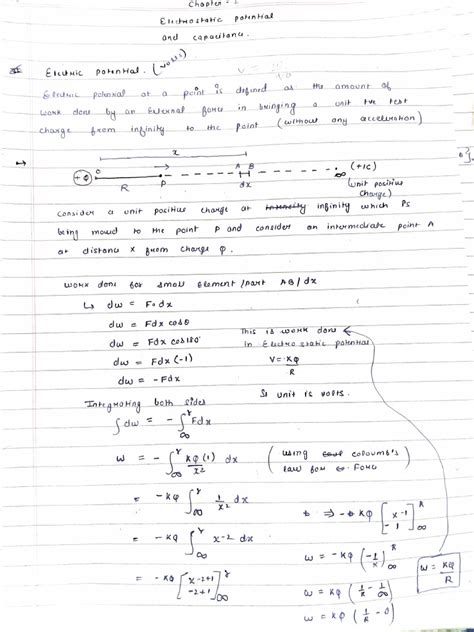 Chapter - 2
Electrostatic potential
and capacitance.
Electric potential. (volts)
Electric potential at a point is defined as the amount of
work done by an External force in bringing a unit +ve test
charge from infinity to the point (without any acceleration)
x
+Q O P A B ∞ (+1C)
R dx (unit positive
charge)
consider a unit positive charge at infinity which is
being moved to the point P and consider an intermediate point A
at distance x from charge Q.
work done for small element/part AB/dx
↳ dw = F. dx
dw = Fdx cosθ
dw = Fdx cos180°
dw = Fdx (-1)
dw = -Fdx
This is work done
in Electrostatic potential
V = KQ/R
SI unit is volts.
Integrating both sides
∫dw = -∫∞^r Fdx
w = -∫∞^r KQ(1)/x² dx (using coloumb's
law for Force)
= -KQ ∫∞^r 1/x² dx
= -KQ ∫∞^r x-2 dx
= -KQ [x-2+1/-2+1]∞^r
⇒ -KQ [x-1/-1]∞^R
w = -KQ (-1/x)∞^R
w = KQ (1/R - 1/∞)
w = KQ (1/R - 0)
w = KQ/R